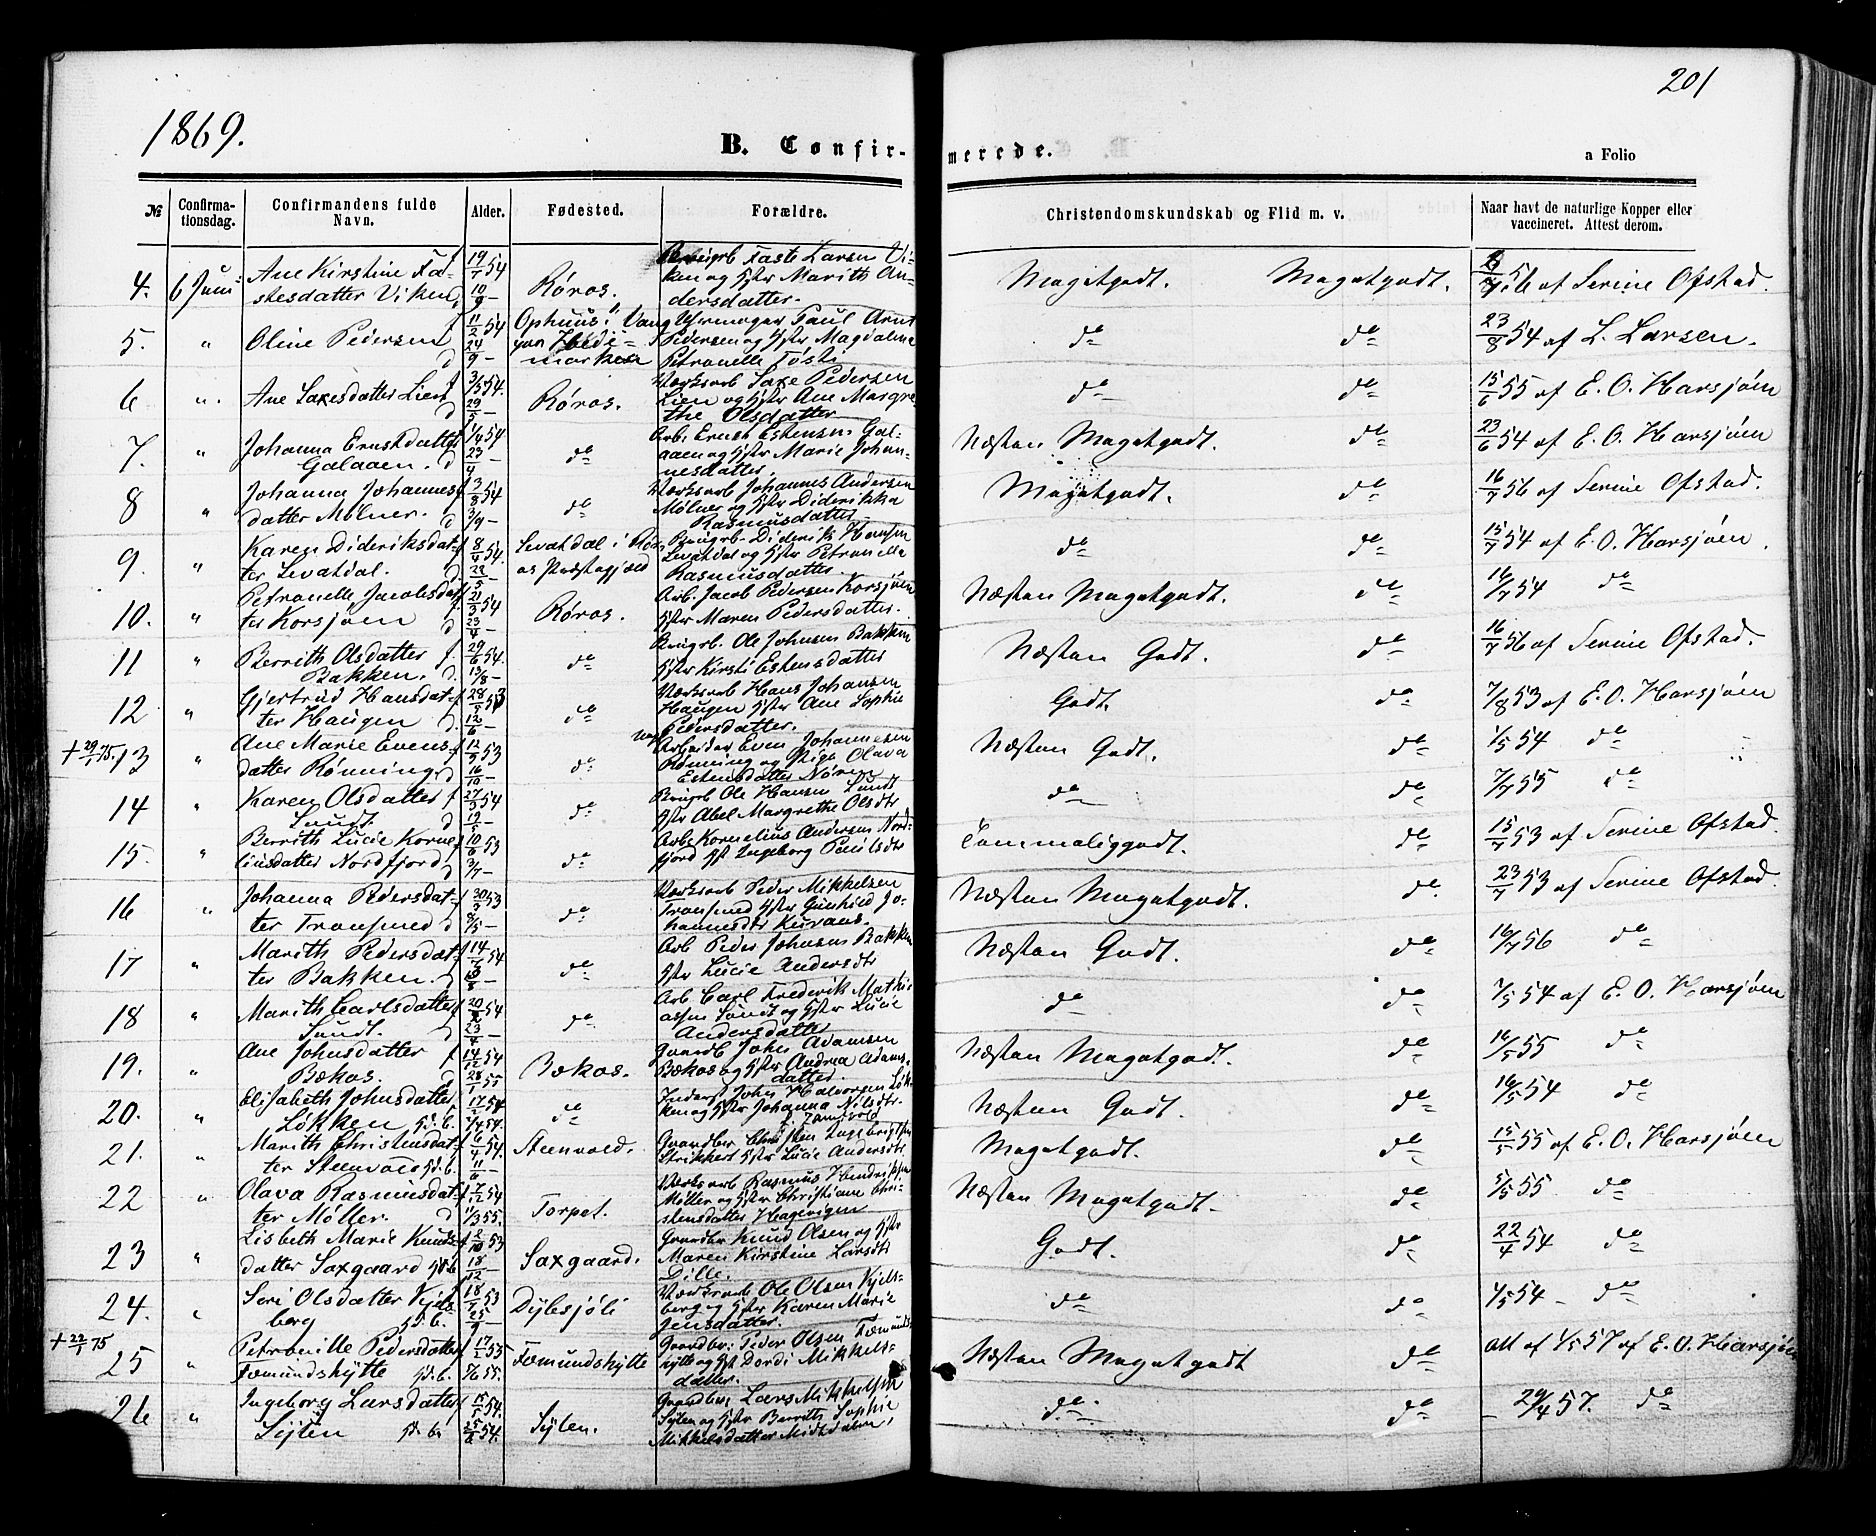 201
1869.
B. Confir-
merede.
a Folio
№
Confirma-
tionsdag.
Confirmandens fulde
Navn.
Alder.
Fødested.
Forældre.
Christendomskundskab og Flid m. v.
Naar havt de naturlige Kopper eller
vaccineret. Attest derom.
4. 6 Juni Ane Kirstine Fa-
stesdatter Viken f 19/7 54 Røros. Faste Larsen Vi-
ken og Hstr Marith An-
dersdatter. Megetgodt. Megetgodt. 56 af Serine Ofstad.
5. " Oline Pedersen f 11/2 54
d 24/9 – Ophuus i Vang
Paul Arnt
Pedersen og Hstr Magdalena
Petronelle Tøsti do do 23/8 54 af L. Larsen.
6 " Ane Saxesdatter Lien f 3/5 54.
d 29/5 – Røros. Værksarb Saxe Pedersen
Lien og Hstr Ane Margre-
the Olsdatter do do 15/6 55 af E. O. Harsjøen
7. " Johanna Ernstdatter
Galaaen. f 1/4 54
d 23/4 – do Arb. Ernst Estensen Gal-
aaen og Hstr Marie Johan-
nesdatter. Næsten Megetgodt. do 23/6 54 af E. O. Harsjøen
8 " Johanna Johannes-
datter Mølner. f 3/8 54
d 3/9 – do Værksarb Johannes Andersen
Mølner og Hstr Diderikka
Rasmusdatter Megetgodt. do 16/7 56 af Serine Ofstad.
9. " Karen Dideriksdat-
ter Levatdal. f 8/4 54
d – Levatdal i Rør-
os Præstegjæld Diderik Hansen
Levatdal og Hstr Petronella
Rasmusdatter. do do 15/7 54 af E. O. Harsjøen.
10. " Petronelle Jacobsdat-
ter Korsjøen f 21/3 54
d 23/4 – Røros. Arb. Jacob Pedersen Korsjøen
Hstr Maren Pedersdatter. Næsten Megetgodt. do 16/7 54 do
11 " Berrith Olsdatter
Bakken. f 29/6 54.
d. 13/8 – do Ole Johnsen Bakken
Hstr Kirsti Estensdatter Næsten Godt. do 16/7 56 af Serine Ofstad.
12 " Gjertrud Hansdat-
ter Haugen f 53
d 12/6 – do Værksarb Hans Johansen
Haugen Hstr Ane Sophie
Pedersdatter. Godt. do 7/8 53 af E. O. Harsjøen
+ 29/1 75. 13 " Ane Marie Evens-
datter Rønning. f 53
d 16/10 – do Arbeider Even Johannesen
Rønning og Pige Olava
Estensdatter Næsten Godt. do 1/5 54 do
14 " Karen Olsdatter
Sundt. f 27/3 54
d – do Ole Hansen Sundt
Hstr Abel Margrethe Olsdtr do do 7/7 55 do
15. " Berrith Lucie Korne-
liusdatter Nordfjord f 10/6 53
3/7 – do Arb Kornelius Andersen Nord-
fjord Hst Ingeborg Paulsdtr Temmeliggodt. do 15/7 53 af Serine Ofstad.
16 " Johanna Pedersdat-
ter Tronsmed f 53
d 8/5 – do Værksarb Peder Mikkelsen
Tronsmed Hstr Gunhild Jo-
hannesdtr Kuraas. Næsten Megetgodt. do. 23/7 53 af Serine Ofstad.
17 " Marith Pedersdat-
ter Bakken. f 54
d – do Arb Peder Johnsen Bakken
Hstr Lucie Andersdtr Næsten Godt. do 16/7 56 do
18 " Marith Carlsdatter
Sundt. f 54
d 23/4 – do Arb Carl Frederik Mathi-
assen Sundt og Hstr Lucie
Andersdatter do do 7/5 54 af E. O. Harsjøen
19. " Ane Johnsdatter
Bækos. f 14/12 54
d 28/1 55 Bækos. Gaardb John Adamsen
Bækos og Hstr Andrea Adams-
datter Næsten Megetgodt. do 16/5 55 do
20. " Elisabeth Johnsdatter
Løkken Hd. b. f 17/2 54
54. do Inderst John Halvorsen Løk-
ken og Hstr Johanna Nilsdtr. Næsten Godt. do 16/5 54 do
21. " Marith Christensdat-
ter Steenvold Hd. b. f 6/4 54.
11/6 – Steenvold. Gaardbr Christen Ingebrigtsen
Strikkert Hstr Lucie Andersdtr Megetgodt. do 15/5 55 af E. O. Harsjøen
22 " Olava Rasmusdat-
ter Møller. f 7/12 54
d 11/3 55. Torpet. Værksarb Rasmus Hendriksen
Møller og Hstr Christiane Chri-
stensdatter Hagevigen Næsten Megetgodt. do 5/5 55 do
23 " Lisbeth Marie Knuds-
datter Saxgaard Hd. b f 2/10 53
18/12 – Saxgaard. Gaardbr Knud Olsen og Hstr
Maren Kirstine Larsdtr
Dille. Godt. do 22/4 54 do
24. " Siri Olsdatter Kjels-
berg Hd. b. f 18/7 53
25/9 – Dybesjøli Værksarb Ole Olsen Kjels-
berg og Hstr Karen Marie
Jensdatter. do do 4/5 54 – do
+ 22/1 75 25 " Petronille Pedersdatter
Fæmundshytte Hd. b. f 17/2 55
55. Fæmundshytte Gaardbr. Peder Olsen Fæmunds-
hytte og Hst Dordi Mikkels-
datter. Næsten Megetgodt do Att af 1/5 57 af E. O. Harsjøen
26 " Ingeborg Larsdatter
Sylen Hd. b. f 54.
54. Sylen. Gaardbr. Lars Mikkelsen
Sylen og Hstr Berrith Sophie
Mikkelsdatter Midtdalen. do. do – 29/4 57. do